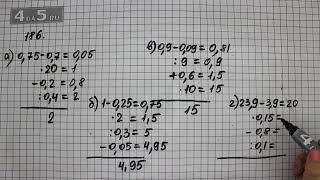 4DA5.RU
186.
а) 0,75-0,7=0,05
·20=1
-0,2=0,8
:0,4=2
2
б) 1-0,25=0,75
·2=1,5
:0,3=5
-0,05=4,95
4,95
в) 0,9-0,09=0,81
:9=0,9
+0,6=1,5
·10=15
15
г) 23,9-3,9=20
·0,15=
-0,8=
:0,1=